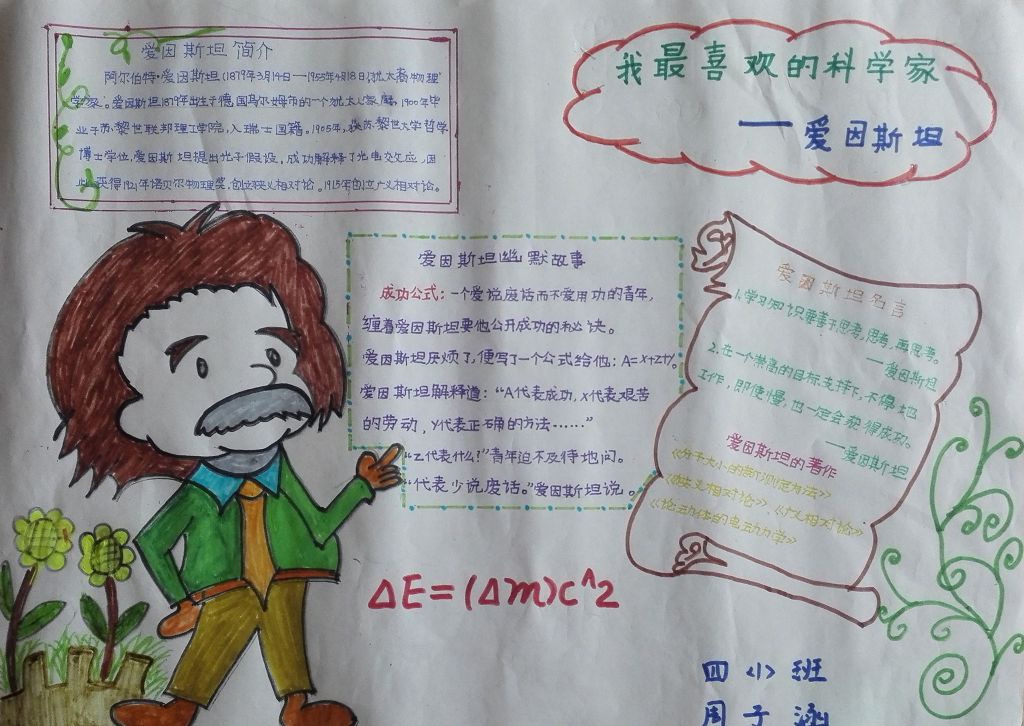 爱因斯坦简介
阿尔伯特·爱因斯坦(1879年3月14日—1955年4月18日)犹太裔物理
学家。爱因斯坦1879年出生于德国乌尔姆市的一个犹太人家庭,1900年毕
业于苏黎世联邦理工学院,入瑞士国籍。1905年,获苏黎世大学哲学
博士学位,爱因斯坦提出光子假设,成功解释了光电效应,因
此获得1921年诺贝尔物理奖,创立狭义相对论。1915年创立广义相对论。
我最喜欢的科学家
——爱因斯坦
爱因斯坦幽默故事
成功公式:一个爱说废话而不爱用功的青年,
缠着爱因斯坦要他公开成功的秘诀。
爱因斯坦厌烦了,便写了一个公式给他:A=x+z+y.
爱因斯坦解释道:“A代表成功,x代表艰苦
的劳动,y代表正确的方法……”
“Z代表什么?”青年迫不及待地问。
“代表少说废话。”爱因斯坦说。
爱因斯坦名言
1.学习知识要善于思考,思考,再思考。
——爱因斯坦
2.在一个崇高的目标支持下,不停地
工作,即使慢,也一定会获得成功。
——爱因斯坦
爱因斯坦的著作
《分子大小的新测定方法》
《狭义相对论》《广义相对论》
《论动体的电动力学》
ΔE=(Δm)c^2
四小班
周子涵